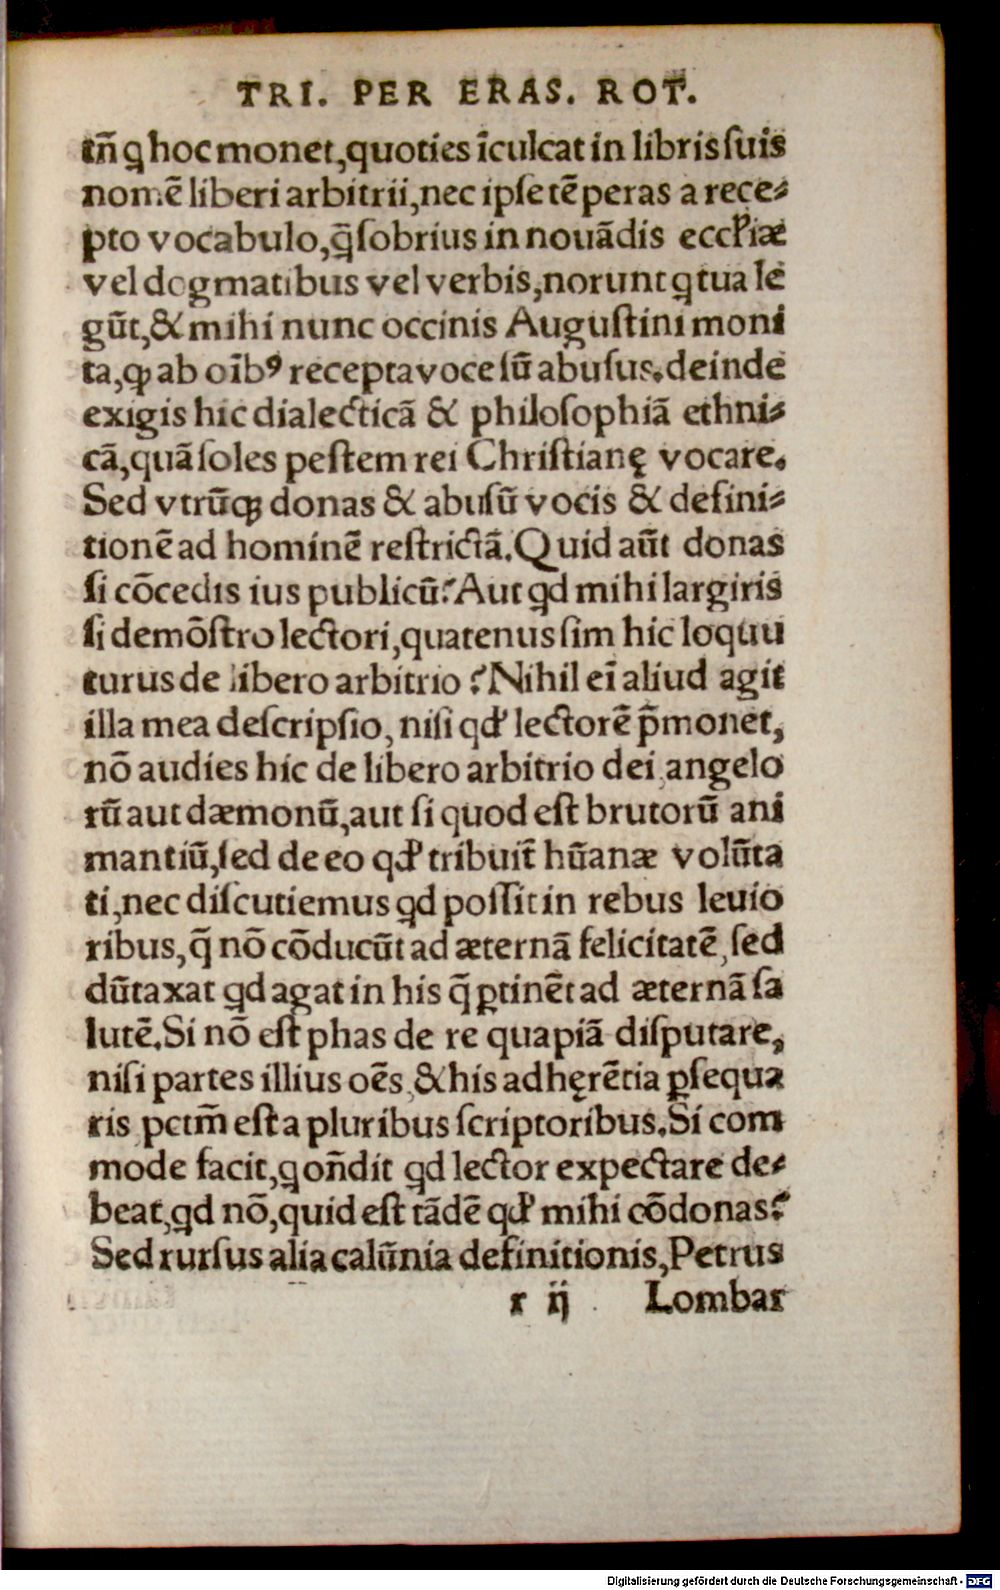 TRI. PER ERAS. ROT.
tñ ꝗ hoc monet, quoties ĩculcat in libris ſuis
nomẽ liberi arbitrii, nec ipſe tẽperas a rece-
pto vocabulo, q̃ ſobrius in nouãdis eccl'iæ
vel dogmatibus vel verbis, norunt ꝗ tua le
gũt, & mihi nunc occinis Auguſtini moni
ta, ꝙ ab oĩbꝰ recepta voce ſũ abuſus. deinde
exigis hic dialecticã & philoſophiã ethni-
cã, quã ſoles peſtem rei Chriſtianę vocare.
Sed vtrũqꝫ donas & abuſũ vocis & defini-
tionẽ ad hominẽ reſtrictã. Quid aũt donas
ſi cõcedis ius publicũ? Aut ꝗd mihi largiris
ſi demõſtro lectori, quatenus ſim hic loquu
turus de libero arbitrio? Nihil eĩ aliud agit
illa mea deſcripſio, niſi qd' lectorẽ p̃monet,
nõ audies hic de libero arbitrio dei, angelo
rũ aut dæmonũ, aut ſi quod eſt brutorũ ani
mantiũ, ſed de eo qd' tribuit̃ hũanæ volũta
ti, nec diſcutiemus ꝗd poſſit in rebus leuio
ribus, q̃ nõ cõducũt ad æternã felicitatẽ, ſed
dũtaxat ꝗd agat in his q̃ ꝑtinẽt ad æternã ſa
lutẽ. Si nõ eſt phas de re quapiã diſputare,
niſi partes illius oẽs, & his adhęrẽtia ꝑſequa
ris, pctm̃ eſt a pluribus ſcriptoribus. Si com
mode facit, ꝗ oñdit ꝗd lector expectare de-
beat, ꝗd nõ, quid eſt tãdẽ qd' mihi cõdonas?
Sed rurſus alia calũnia definitionis, Petrus
r ij Lombar
Digitalisierung gefördert durch die Deutsche Forschungsgemeinschaft - DFG